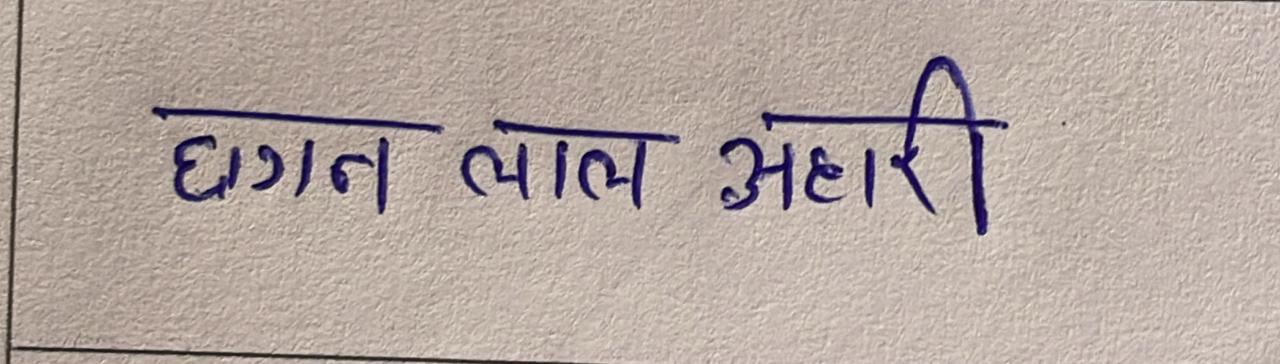 छगन लाल अहारी